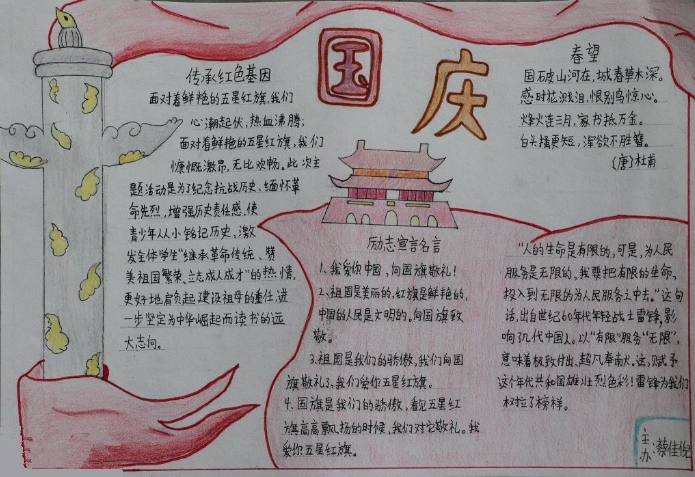 国庆
传承红色基因
面对着鲜艳的五星红旗,我们
心潮起伏,热血沸腾;
面对着鲜艳的五星红旗,我们
慷慨激昂,无比欢畅。此次主
题活动是为了纪念抗战历史、缅怀革
命先烈,增强历史责任感,使
青少年从小铭记历史、激
发全体学生"继承革命传统、赞
美祖国繁荣、立志成人成才"的热情,
更好地肩负起建设祖寺的重任,进
一步坚定为中华崛起而读书的远
大志向。
春望
国破山河在,城春草木深。
感时花溅泪,恨别鸟惊心。
烽火连三月,家书抵万金。
白头搔更短,浑欲不胜簪。
(唐)杜甫
励志宣言名言
1、我爱你中国,向国旗敬礼!
2、祖国是美丽的,红旗是鲜艳的,
中国的人民是文明的。向国旗致
敬。
3.祖国是我们的骄傲,我们向国
旗敬礼了,我们爱你五星红旗。
4、国旗是我们的骄傲,看见五星红
旗高高飘扬的时候,我们对它敬礼。我
爱你五星红旗。
"人的生命是有限的,可是,为人民
服务是无限的,我要把有限的生命,
投入到无限的为人民服务之中去。"这句
话,出自世纪60年代年轻战士雷锋,影
响了几代中国人。以"有限"服务"无限",
意味着极致付出、超凡奉献。这,赋予
这个年代共和国雄壮烈色彩!雷锋为我们
树立了榜样。
主办:蔡佳倪